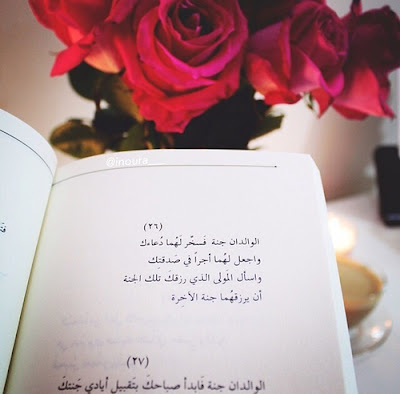 @inoura__
(٢٦)
الوالدان جنة فَسخّر لَهُما دُعاءك
واجعل لهُما أجراً في صَدقتِك
واسأل المولى الذي رزقكَ تلك الجنة
أن يرزقهُما جنة الآخِرة
(٢٧)
الوالدان جنة فَابدأ صباحكَ بتَقبيل أيادي جَنتكَ